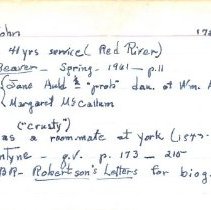 John 17
41 yrs service (Red River)
Beaver - Spring - 1961 - p.11
Jane Auld "prob" dau. of Wm. A
Margaret McCallum
("crusty")
as a roommate at York (
ntyne - q.v. p. 173 - 210
BR - Robertson's Letters for biog.